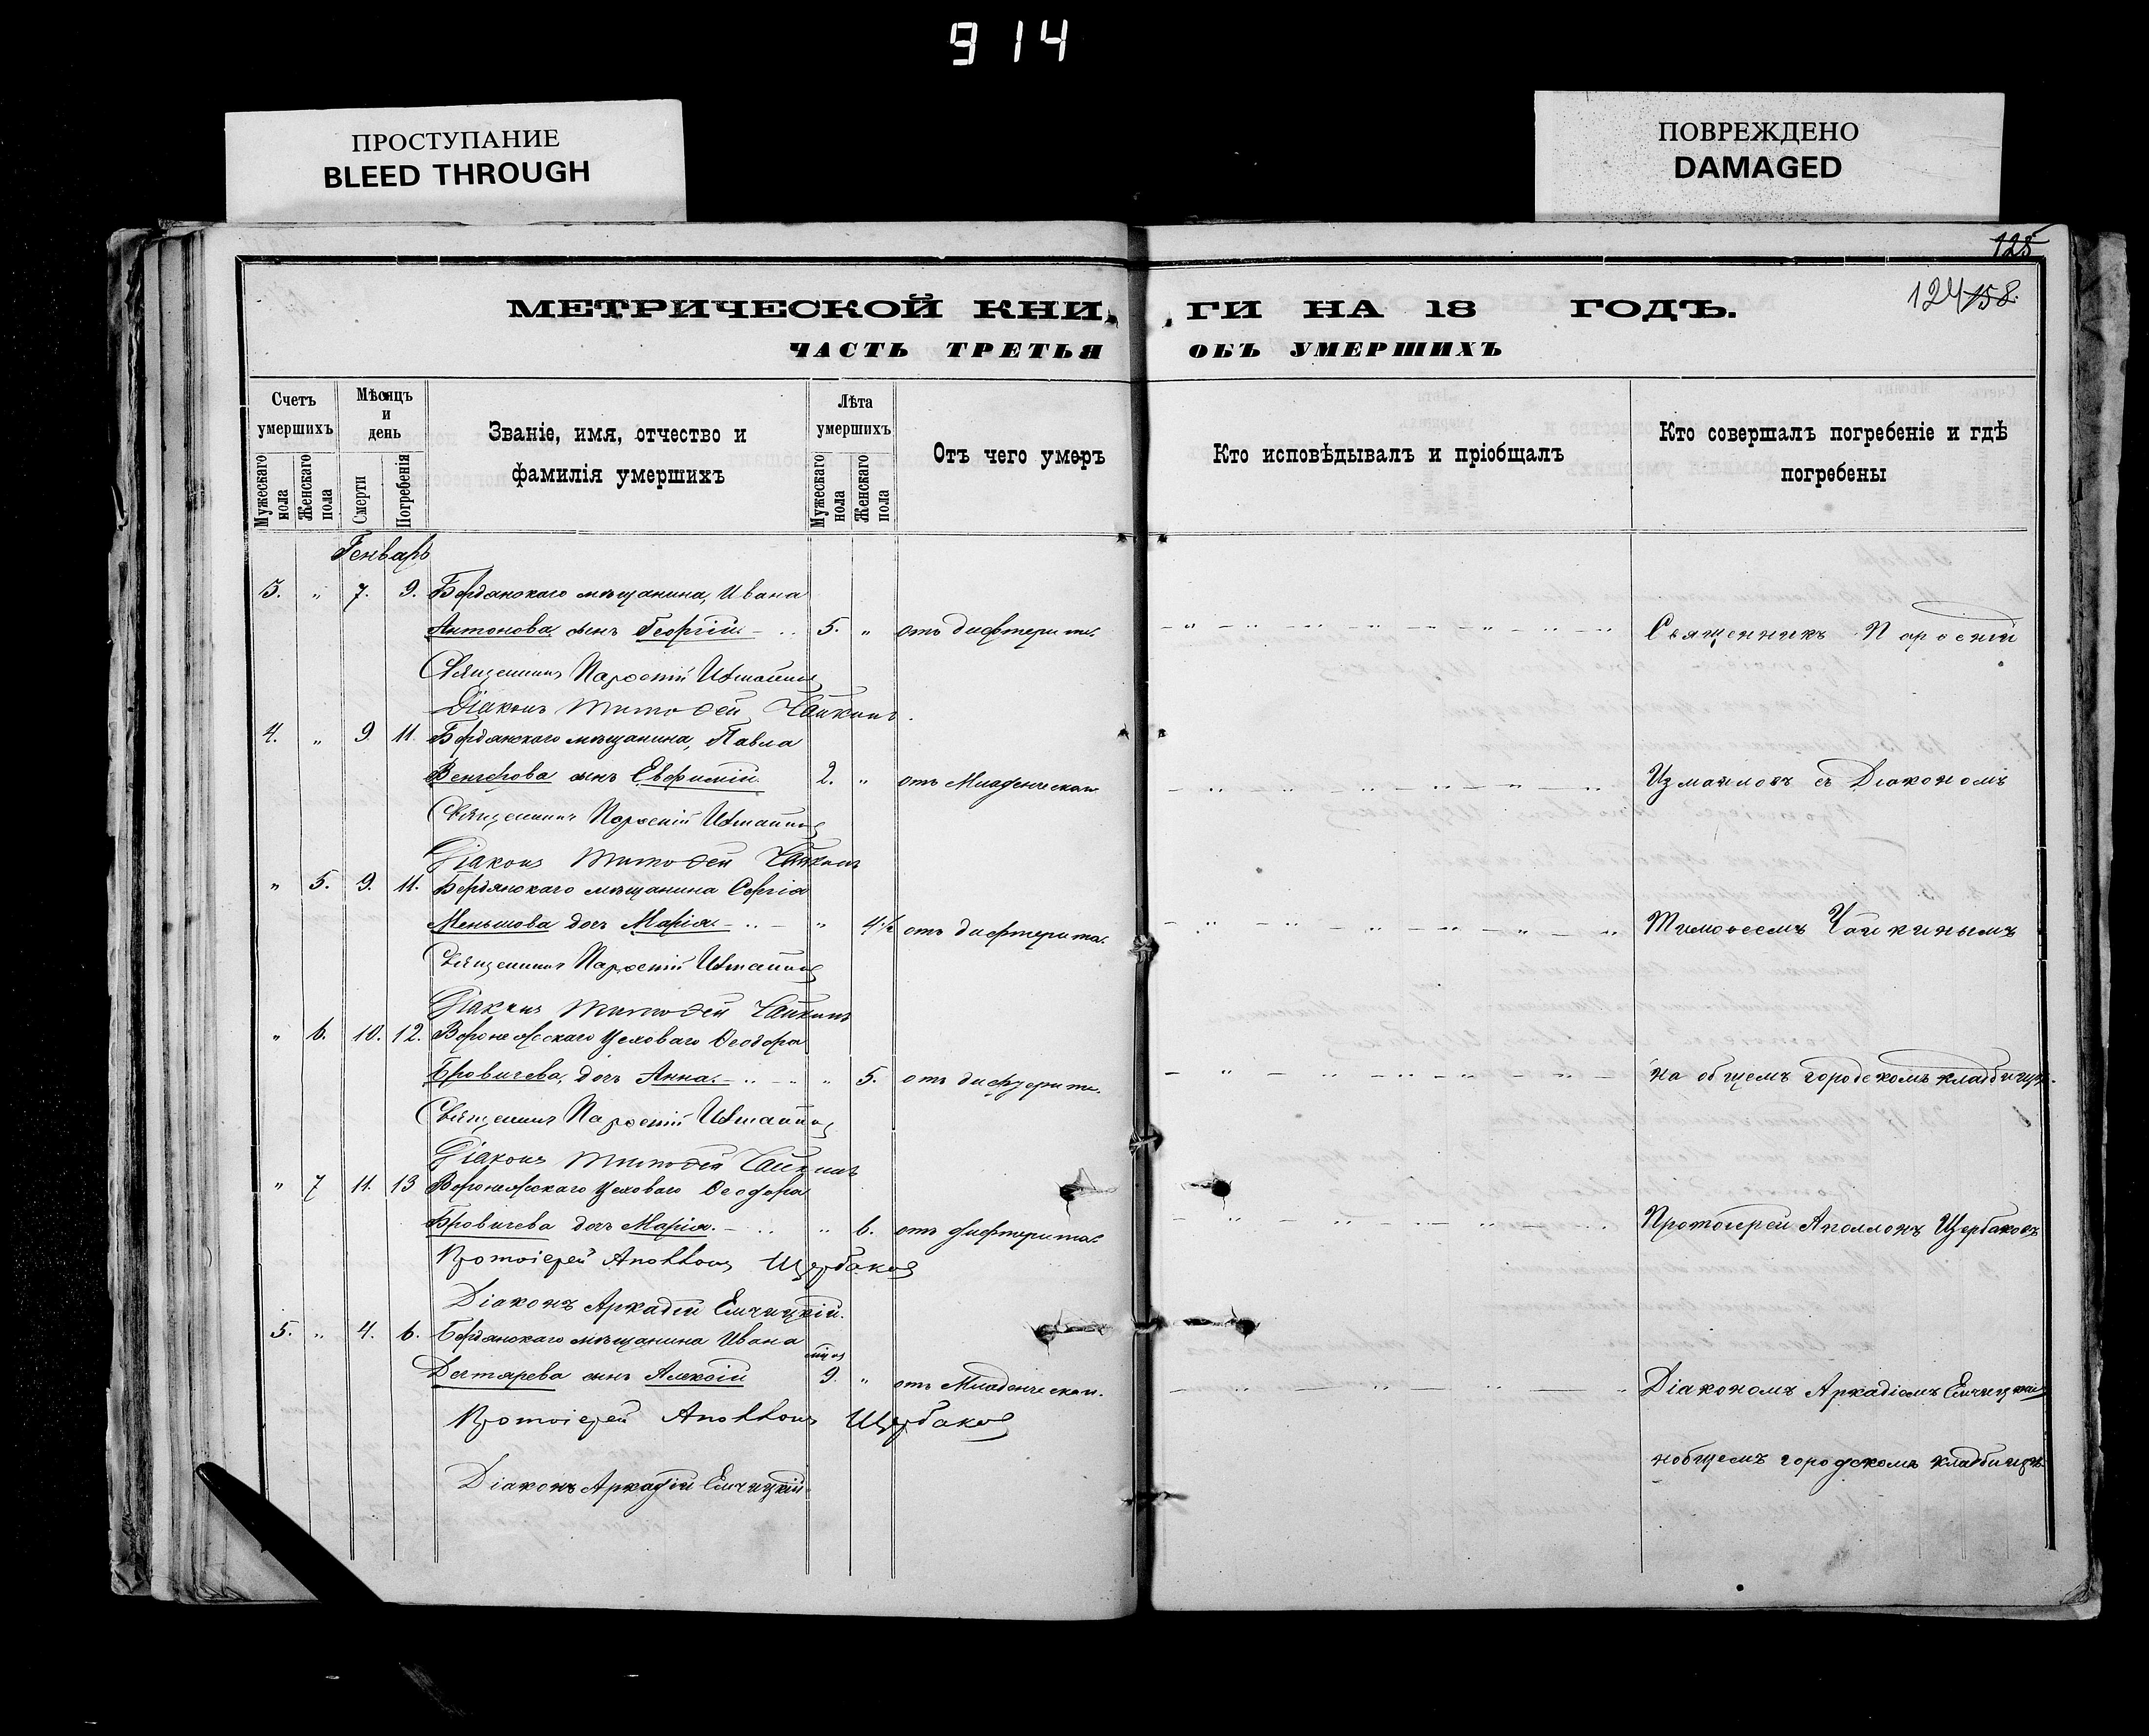 914
ПРОСТУПАНИЕ
BLEED THROUGH
ПОВРЕЖДЕНО
DAMAGED
125
124 158.
МЕТРИЧЕСКОЙ КНИ ГИ НА 18 ГОДЪ.
ЧАСТЬ ТРЕТЬЯ ОБЪ УМЕРШИХЪ
Счетъ умершихъ
Мужескаго пола
Женскаго пола
Мѣсяцъ и день
Смерти
Погребенія
Званіе, имя, отчество и фамилія умершихъ
Лѣта умершихъ
Мужескаго пола
Женскаго пола
Отъ чего умеръ
Кто исповѣдывалъ и пріобщалъ
Кто совершалъ погребеніе и гдѣ погребены
Генварь
3. " 7. 9. Бердянскаго мѣщанина, Ивана
Антонова сынъ Георгій 5. " отъ дифтерита Священникъ Парѳеній
Священникъ Парѳеній Измаиловъ
Діаконъ Тимоѳей Чайкинъ.
4. " 9 11. Бердянскаго мѣщанина, Павла
Венгерова сынъ Евфимій 2. " отъ Младенческой Измаиловъ съ Діакономъ
Священникъ Парѳеній Измаиловъ
Діаконъ Тимоѳей Чайкинъ
" 5. 9. 11. Бердянскаго мѣщанина Сергія
Меньшова дочь Марія " 4½ отъ дифтерита. Тимоѳеемъ Чайкинымъ
Священникъ Парѳеній Измаиловъ
Діаконъ Тимоѳей Чайкинъ
" 6. 10. 12. Воронежскаго Цеховаго Ѳеодора
Бровичева, дочь Анна. " 5. отъ дифтерита. на общемъ городскомъ кладбищѣ.
Священникъ Парѳеній Измаиловъ
Діаконъ Тимоѳей Чайкинъ
" 7 11. 13 Воронежскаго Цеховаго Ѳеодора
Бровичева дочь Марія. " 6. отъ дифтерита. Протоіерей Аполлонъ Щербаковъ
Протоіерей Аполлонъ Щербаковъ
Діаконъ Аркадій Емчицкій.
5. " 4. 6. Бердянскаго мѣщанина Ивана
Дегтярева сынъ Алексій 9 " отъ Младенческой. Діакономъ Аркадіемъ Емчицкимъ
Протоіерей Аполлонъ Щербаковъ
на общемъ городскомъ кладбищѣ.
Діаконъ Аркадій Емчицкій